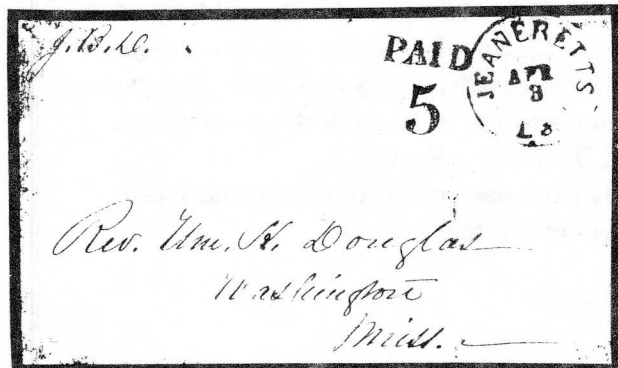 J.B.D.
PAID
5
JEANERETTS
APR
8
La
Rev. Wm. H. Douglas
Washington
Miss.